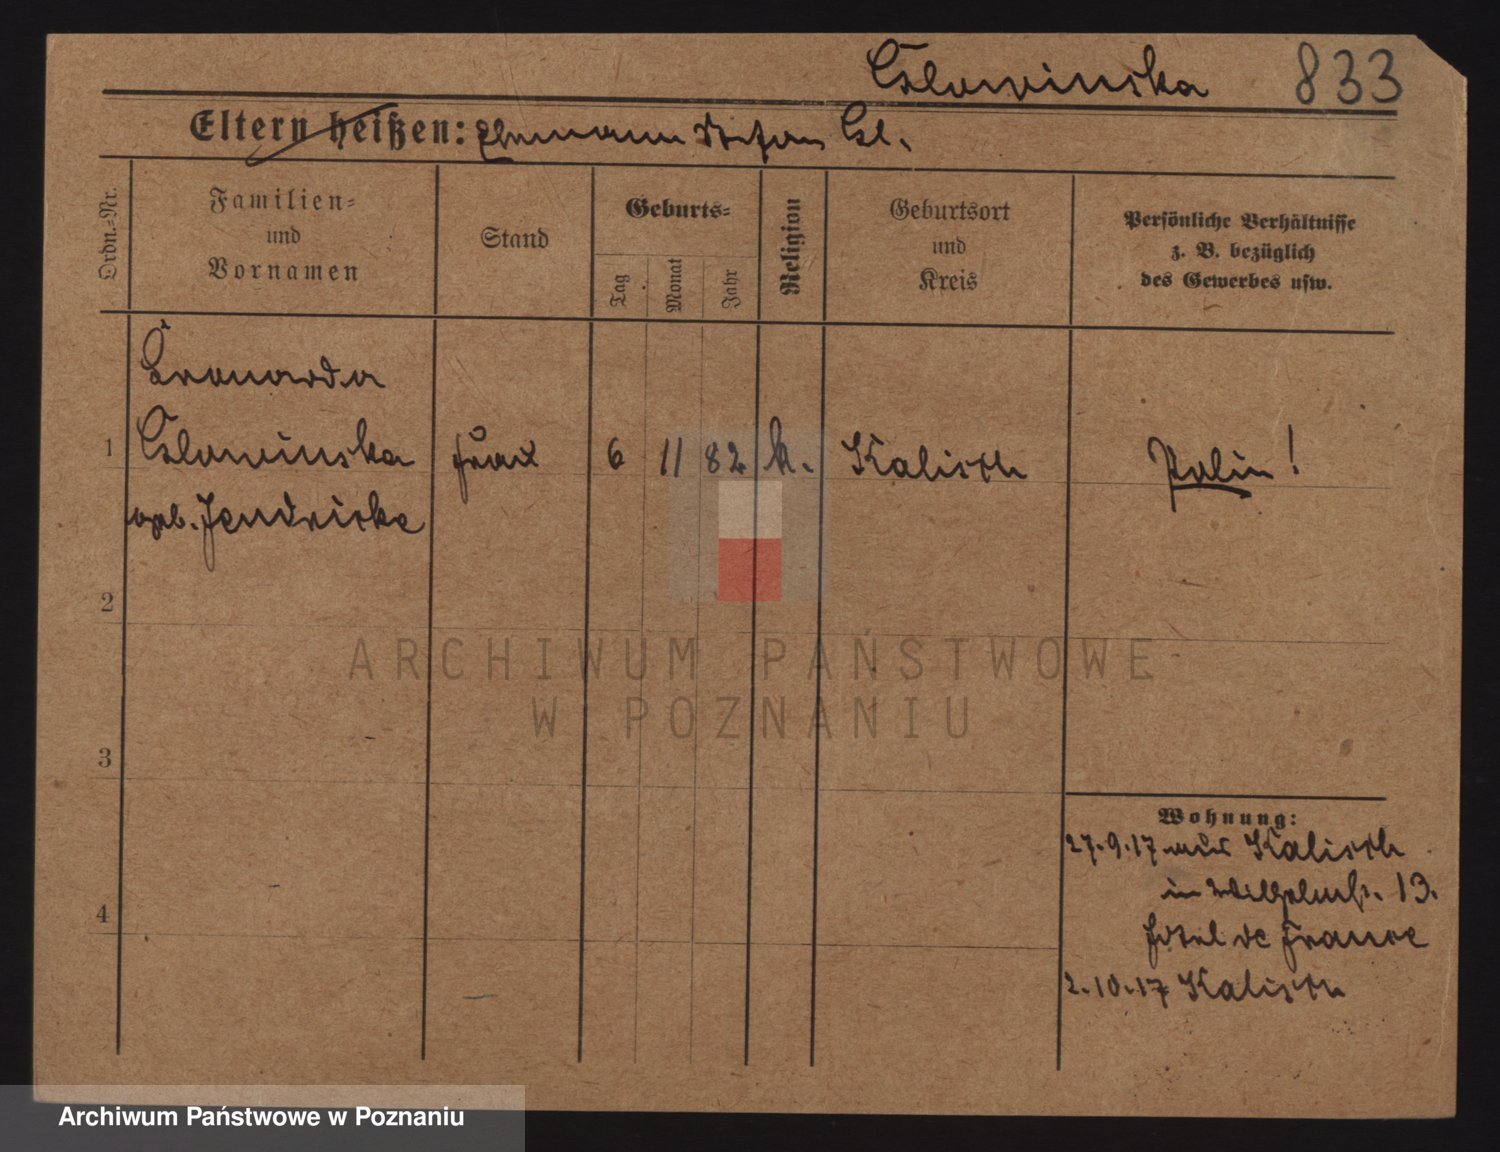 Cslowinska 833
Eltern heißen: Ehemann Stefan Csl.
Ordn.-Nr.
Familien-
und
Vornamen
Stand
Geburts-
Tag
Monat
Jahr
Religion
Geburtsort
und
Kreis
Persönliche Verhältnisse
z. B. bezüglich
des Gewerbes usw.
Leonarda
1 Cslowinska Frau 6 11 82 k. Kalisch Polin!
geb. Jendricke
2
3
4
Wohnung:
27.9.17 aus Kalisch
in Wilhelmstr. 13.
Hotel de France
2.10.17 Kalisch
ARCHIWUM PAŃSTWOWE
W POZNANIU
Archiwum Państwowe w Poznaniu